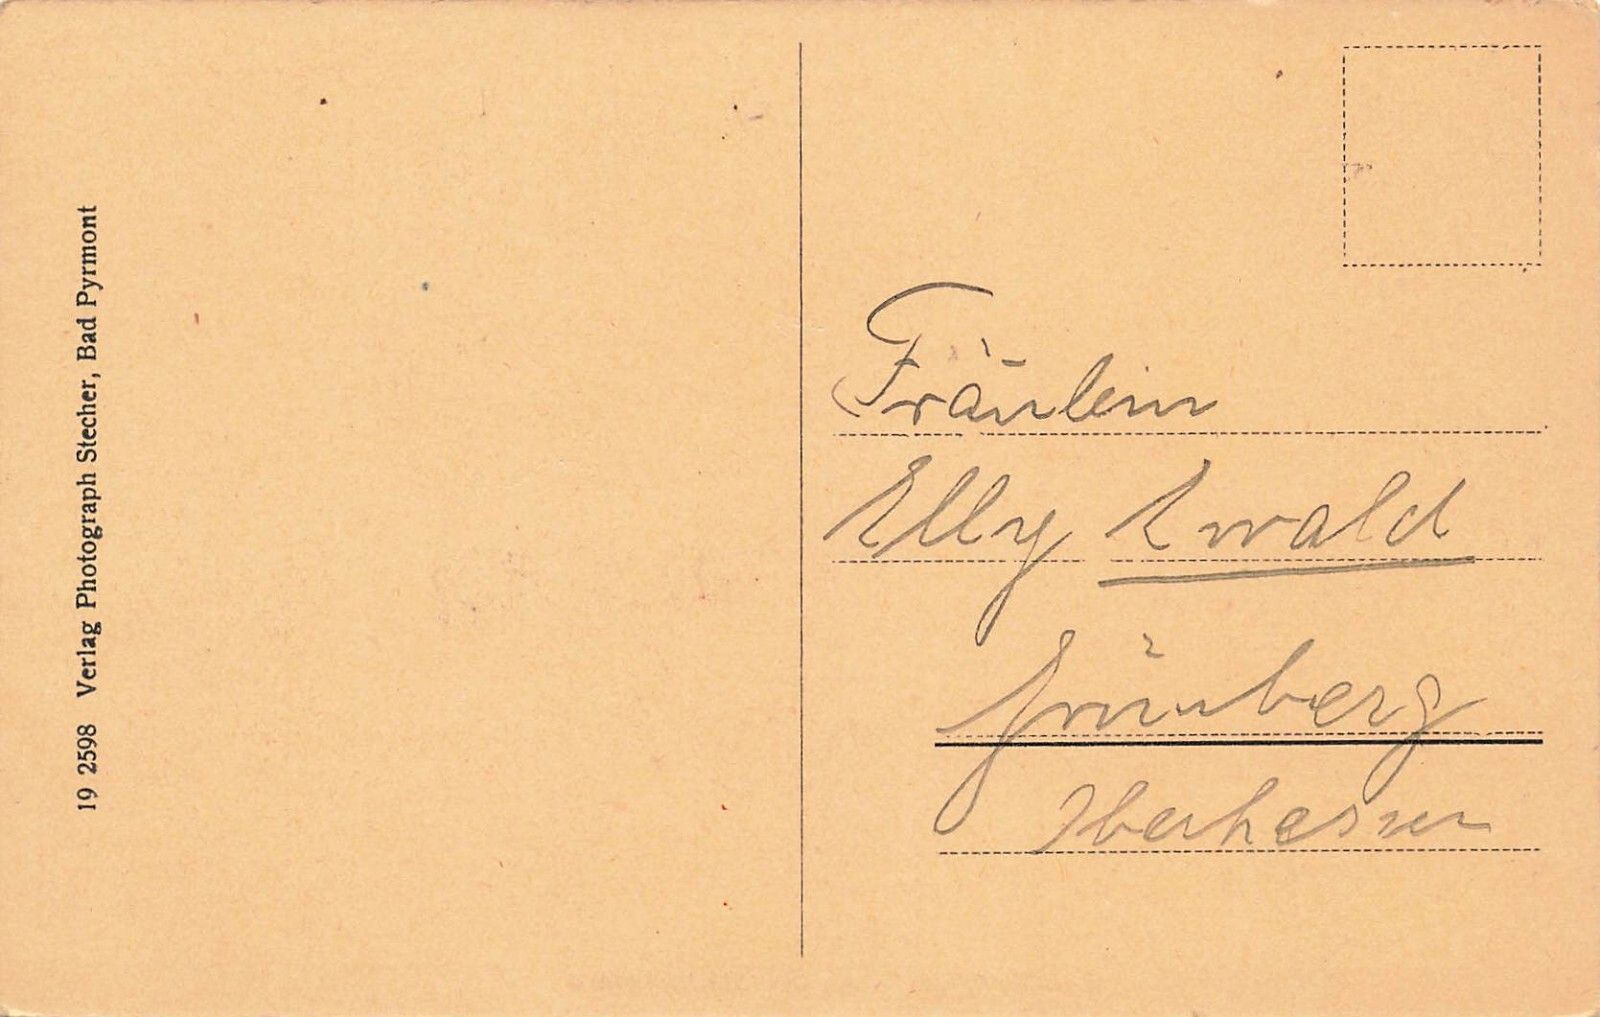 19 2598 Verlag Photograph Stecher, Bad Pyrmont
Fräulein
Elly Ewald
Grünberg
Oberhessen